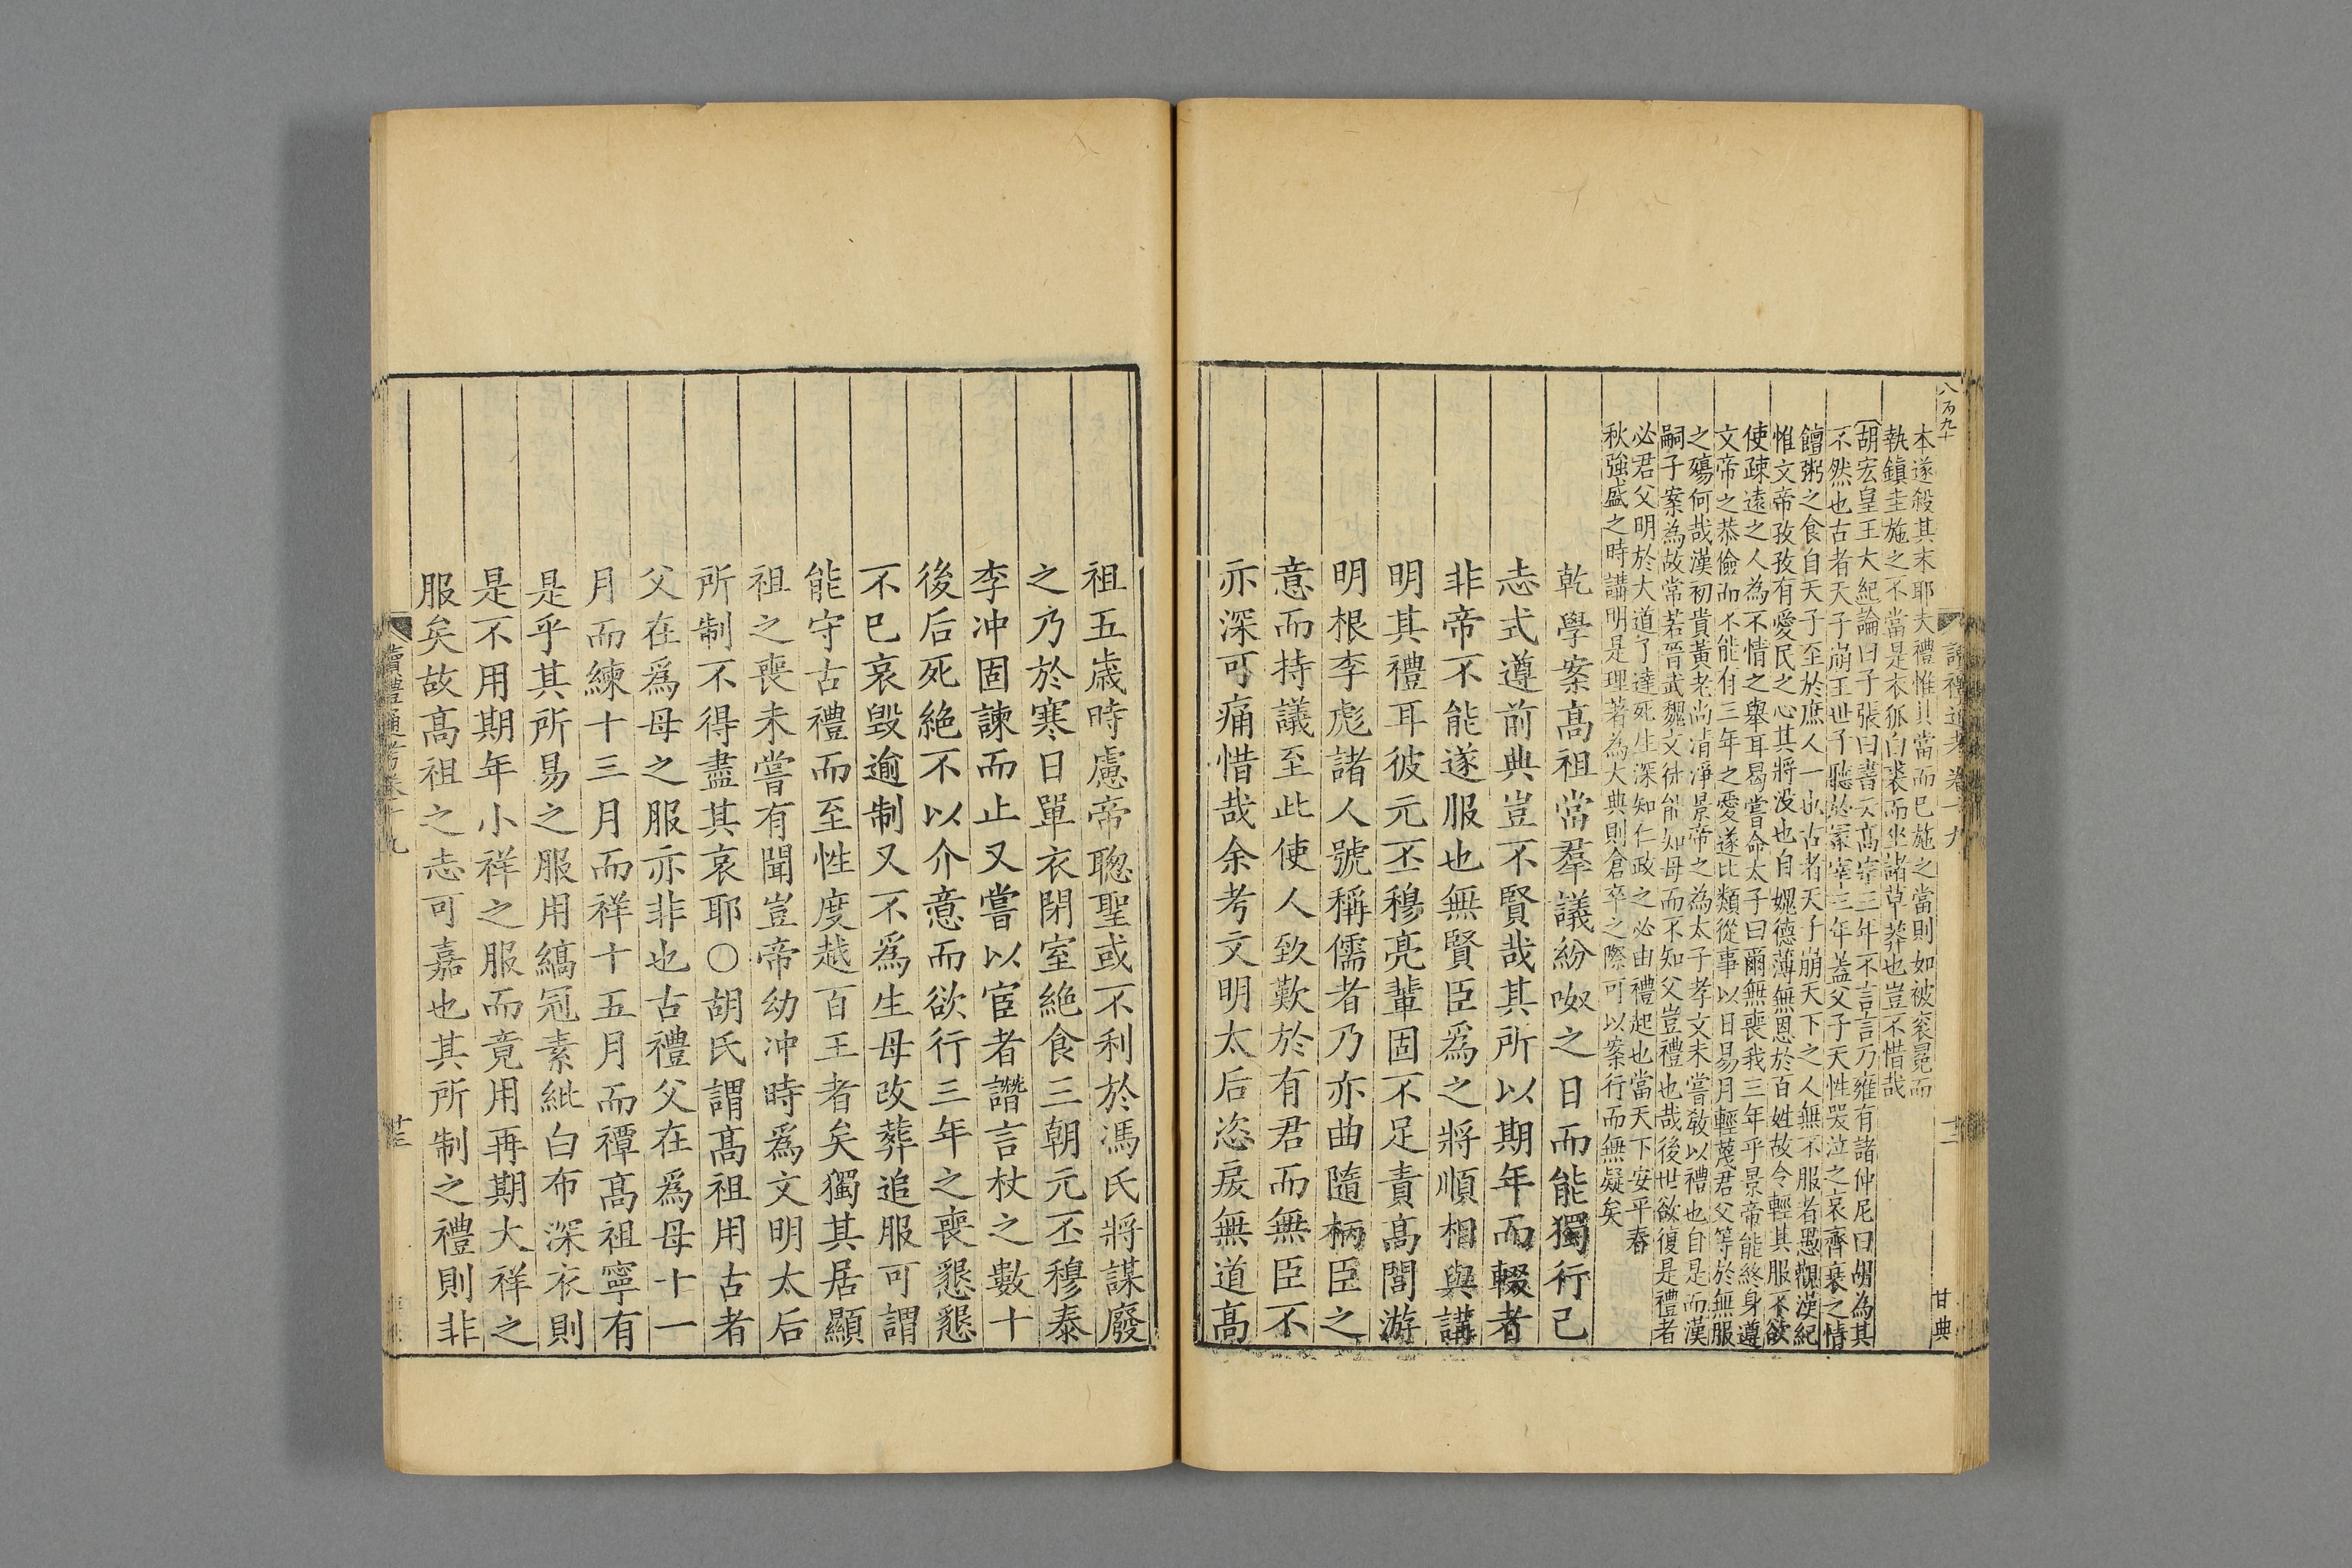 八百九十
讀禮通考卷十九
甘典
本遂殺其末耶夫禮惟其當而已施之當則如被衮冕而
執鎮圭施之不當是衣狐白裘而坐諸草莽也豈不惜哉
胡宏皇王大紀論曰子張曰書云高宗三年不言言乃雍有諸仲尼曰胡為其
不然也古者天子崩王世子聽於冢宰三年蓋父子天性哭泣之哀齊衰之情
饘粥之食自天子至於庶人一也古者天子崩天下之人無不服者愚觀漢紀
惟文帝孜孜有愛民之心其將沒也自媿德薄無恩於百姓故令輕其服不欲
使疎遠之人為不情之舉耳曷嘗命太子曰爾無喪我三年乎景帝能終身遵
文帝之恭儉而不能付三年之愛遂比類從事以日易月輕蔑君父等於無服
之殤何哉漢初貴黃老尚清淨景帝之為太子孝文未嘗敎以禮也自是而漢
嗣子案為故常若晉武魏文徒能知母而不知父豈禮也哉後世欲復是禮者
必君父明於大道了達死生深知仁政之必由禮起也當天下安平春
秋強盛之時講明是理著為大典則倉卒之際可以案行而無疑矣
乾學案高祖當羣議紛呶之日而能獨行己
志式遵前典豈不賢哉其所以期年而輟者
非帝不能遂服也無賢臣爲之將順相與講
明其禮耳彼元丕穆亮輩固不足責高閭游
明根李彪諸人號稱儒者乃亦曲隨柄臣之
意而持議至此使人致歎於有君而無臣不
亦深可痛惜哉余考文明太后恣戾無道高
祖五歳時慮帝聰聖或不利於馮氏將謀廢
之乃於寒日單衣閉室絶食三朝元丕穆泰
李冲固諫而止又嘗以宦者譖言杖之數十
後后死絶不以介意而欲行三年之喪懇懇
不已哀毀逾制又不爲生母改葬追服可謂
能守古禮而至性度越百王者矣獨其居顯
祖之喪未嘗有聞豈帝幼冲時爲文明太后
所制不得盡其哀耶○胡氏謂高祖用古者
父在爲母之服亦非也古禮父在爲母十一
月而練十三月而祥十五月而禫高祖寧有
是乎其所易之服用縞冠素紕白布深衣則
是不用期年小祥之服而竟用再期大祥之
服矣故高祖之志可嘉也其所制之禮則非
讀禮通考卷十九